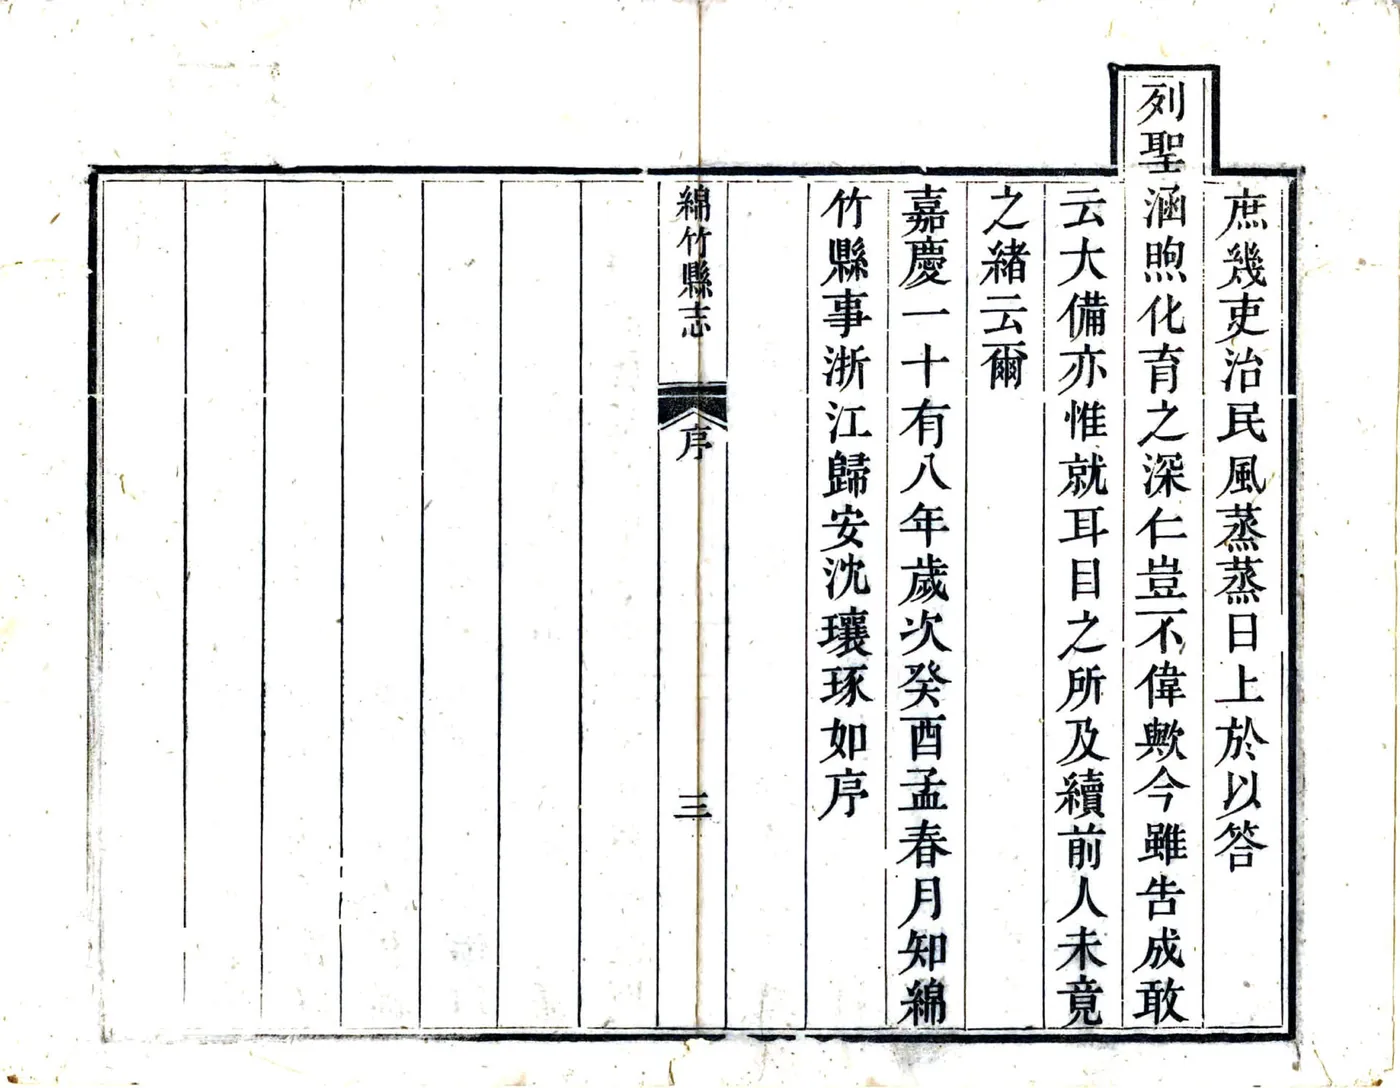 庶幾吏治民風蒸蒸日上於以答
列聖涵煦化育之深仁豈不偉歟今雖告成敢
云大備亦惟就耳目之所及續前人未竟
之緒云爾
嘉慶一十有八年歲次癸酉孟春月知綿
竹縣事浙江歸安沈瓖琢如序
綿竹縣志
序
三